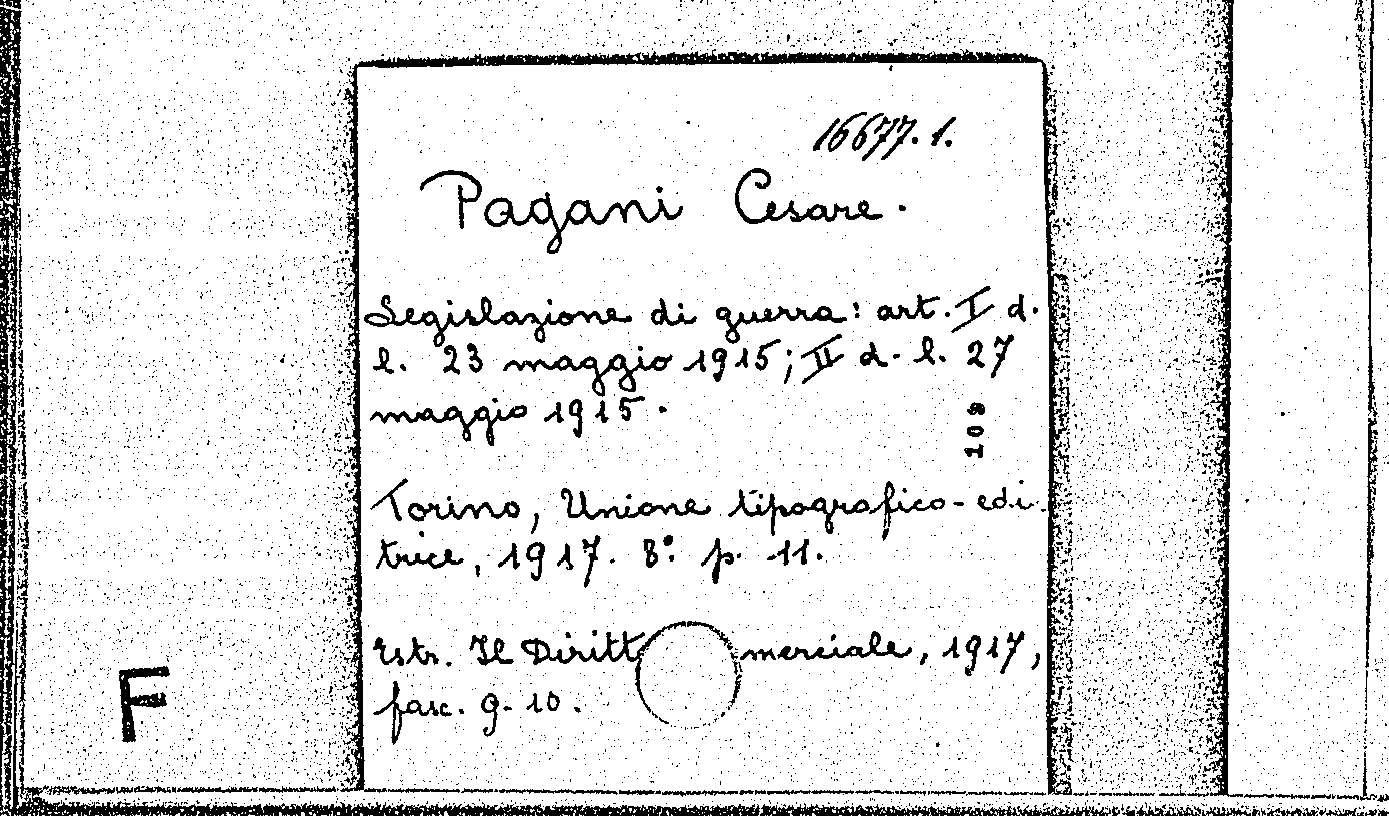 16677.1.
Pagani Cesare.
Legislazione di guerra: art. I d.
l. 23 maggio 1915; II d. l. 27
maggio 1915.
109
Torino, Unione tipografico-edi
trice, 1917. 8º p. 11.
Estr. Il Diritt merciale, 1917,
fasc. 9-10.
F